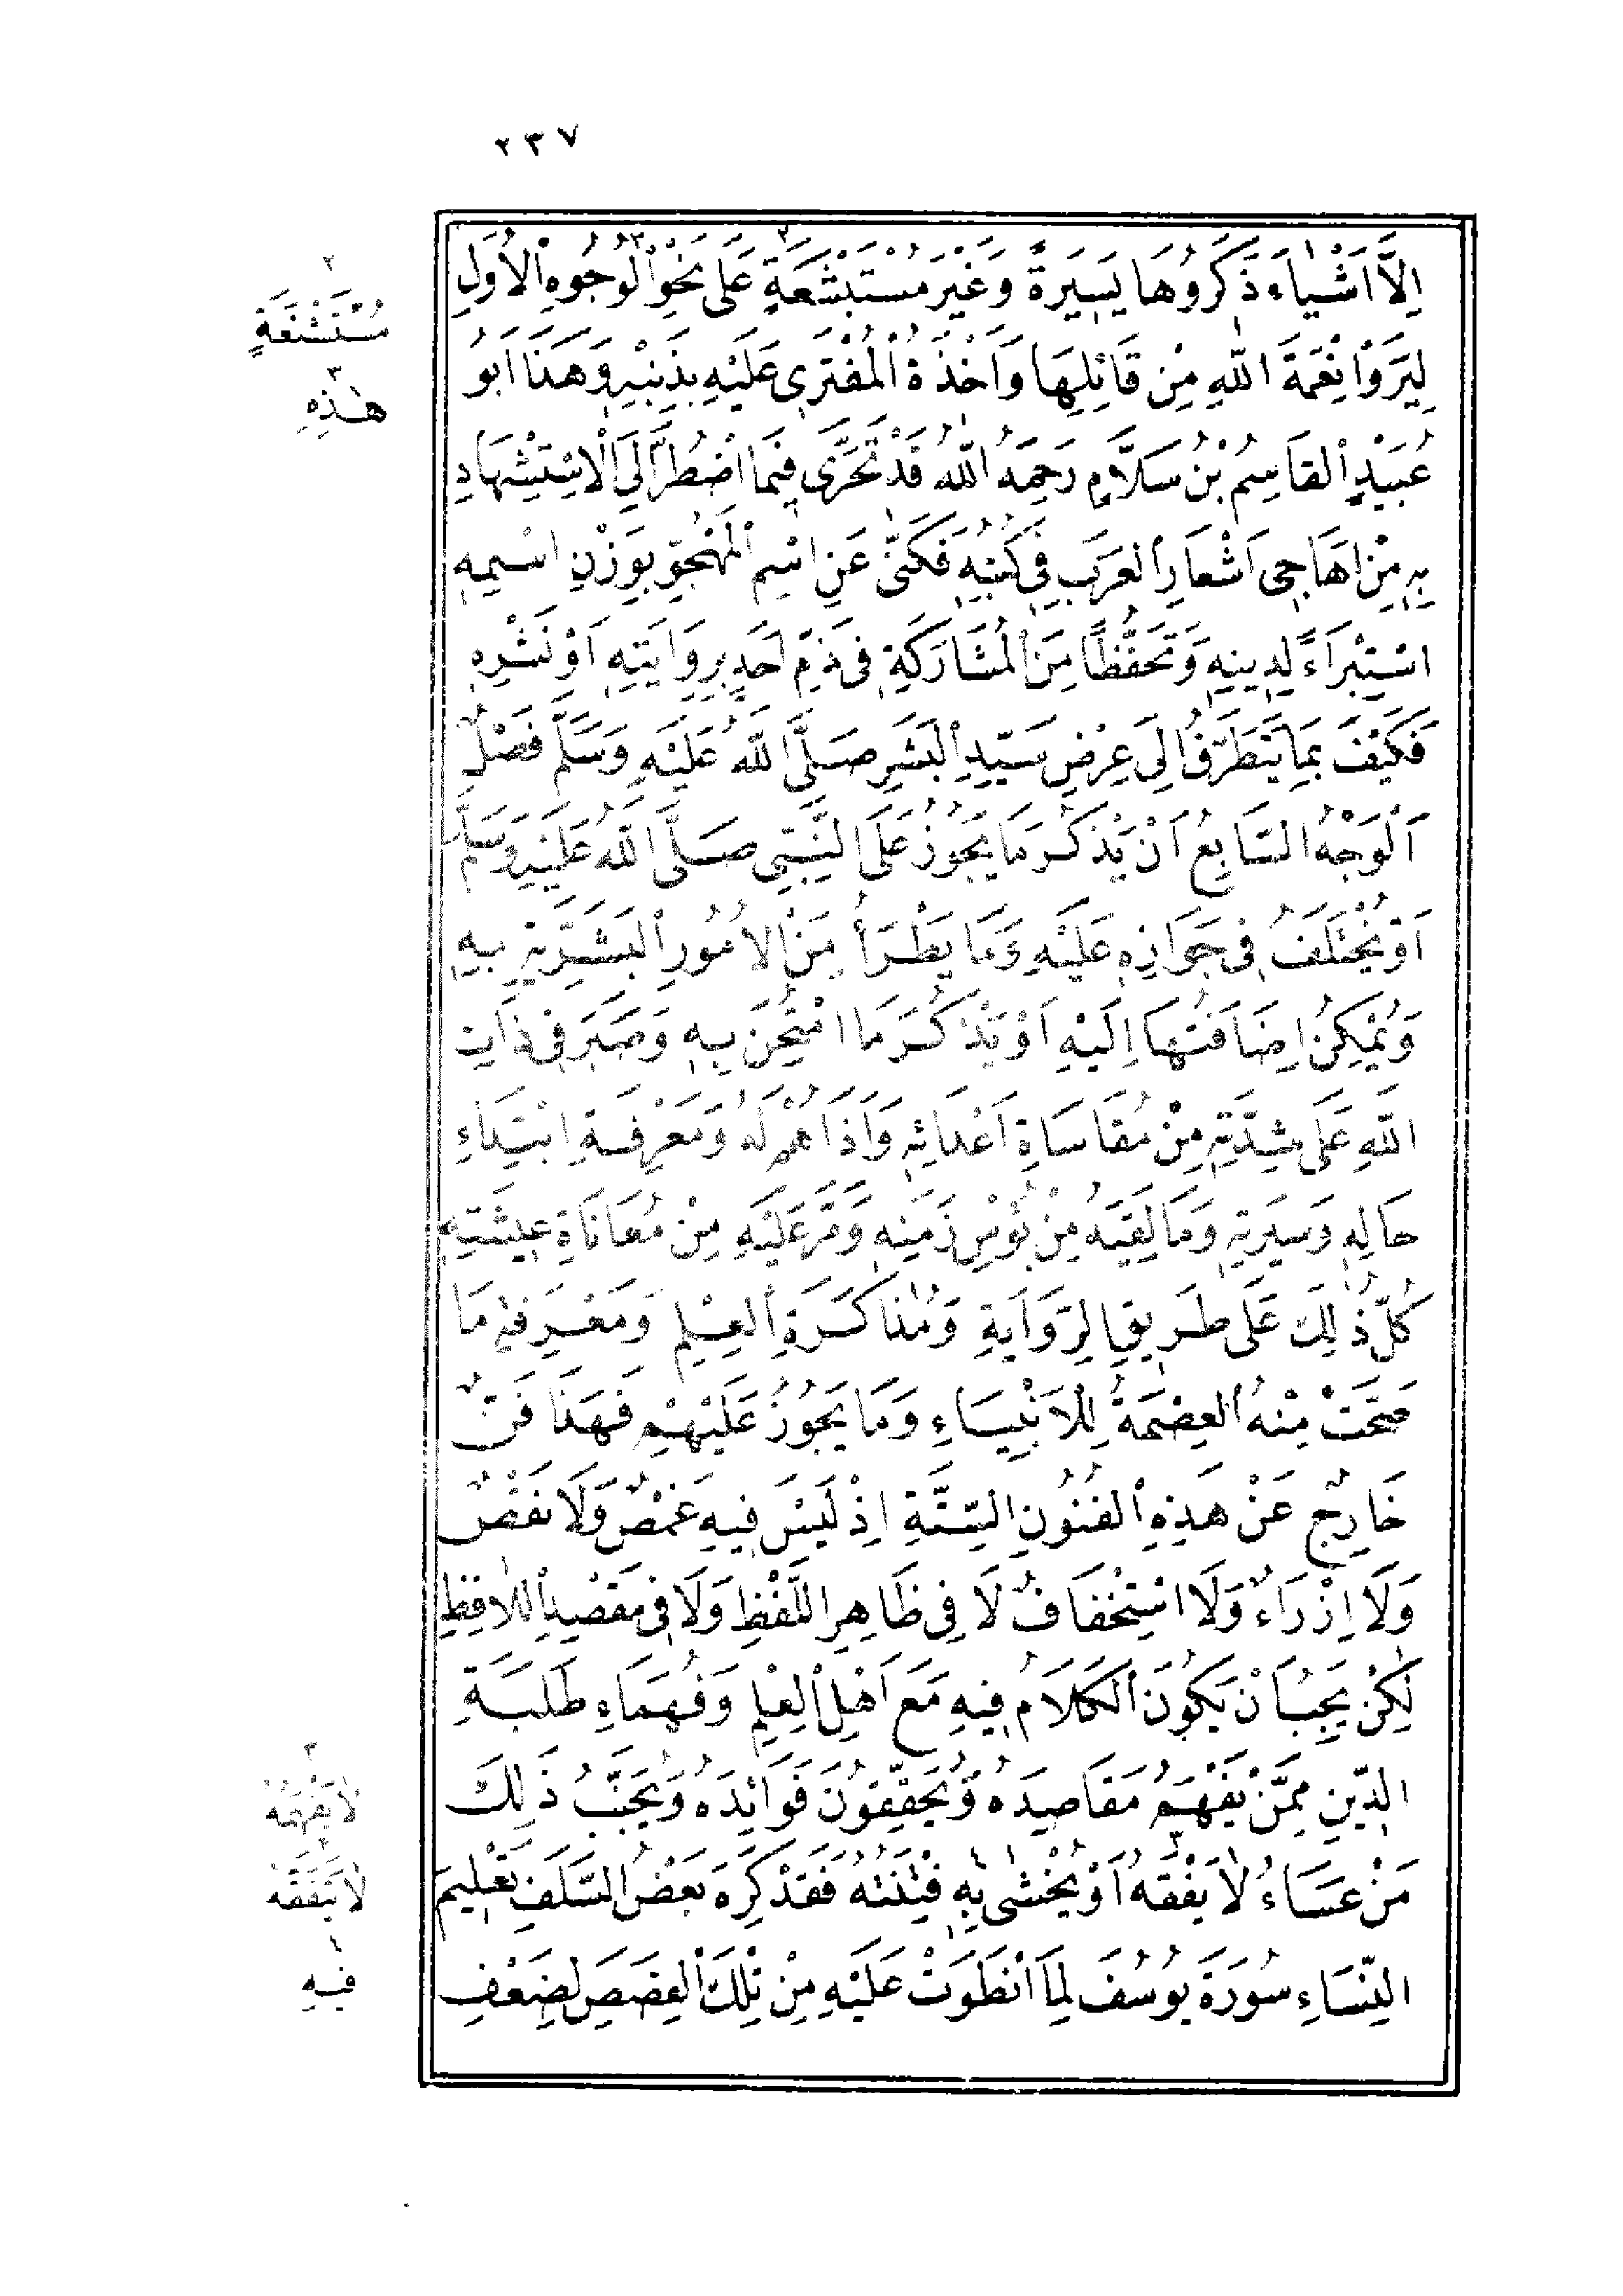 ٢٣٧
اِلَّا اَشْيَاءَ ذَكَرُوهَا يَسِيرَةً وَغَيْرَ مُسْتَبْشَعَةٍ٢ عَلَى نَحْوِ٣ الْوُجُوهِ الْاُوَلِ
لِيَرَوْا نِقْمَةَ اللهِ مِنْ قَائِلِهَا وَاَخْذَةُ الْمُفْتَرِى عَلَيْهِ بِذَنْبِهِ وَهَذَا اَبُو
عُبَيْدٍ الْقَاسِمُ بْنُ سَلَّامٍ رَحِمَهُ اللهُ قَدْ تَحَرَّى فِيمَا اضْطُرَّ اِلَى الْاِسْتِشْهَادِ
بِهِ مِنْ اَهَاجِى اَشْعَارِ الْعَرَبِ فِى كُتُبِهِ فَكَنَّى عَنِ اسْمِ الْمَهْجُوِّ بِوَزْنِ اسْمِهِ
اسْتِبْرَاءً لِدِينِهِ وَتَحَفُّظًا مِنَ الْمُشَارَكَةِ فِى ذَمِّ اَحَدٍ بِرِوَايَتِهِ اَوْ نَشْرِهِ
فَكَيْفَ بِمَا يَتَطَرَّقُ اِلَى عِرْضِ سَيِّدِ الْبَشَرِ صَلَّى اللهُ عَلَيْهِ وَسَلَّمَ فَصْلٌ
اَلْوَجْهُ السَّابِعُ اَنْ يَذْكُرَ مَا يَجُوزُ عَلَى النَّبِىِّ صَلَّى اللهُ عَلَيْهِ وَسَلَّمَ
اَوْ يُخْتَلَفُ فِى جَوَازِهِ عَلَيْهِ وَمَا يَطْرَأُ مِنَ الْاُمُورِ الْبَشَرِيَّةِ بِهِ
وَيُمْكِنُ اِضَافَتُهَا اِلَيْهِ اَوْ يَذْكُرَ مَا امْتُحِنَ بِهِ وَصَبَرَ فِى ذَاتِ
اللهِ عَلَى شِدَّتِهِ مِنْ مُقَاسَاةِ اَعْدَائِهِ وَاَذَاهُمْ لَهُ وَمَعْرِفَةِ ابْتِدَاءِ
حَالِهِ وَسِيرَتِهِ وَمَا لَقِيَهُ مِنْ بُؤْسِ زَمَنِهِ وَمَرَّ عَلَيْهِ مِنْ مُعَانَاةِ عِيشَتِهِ
كُلُّ ذٰلِكَ عَلَى طَرِيقِ الرِّوَايَةِ وَمُذَاكَرَةِ الْعِلْمِ وَمَعْرِفَةِ مَا
صَحَّتْ مِنْهُ الْعِصْمَةُ لِلْاَنْبِيَاءِ وَمَا يَجُوزُ عَلَيْهِمْ فَهَذَا فَنٌّ
خَارِجٌ عَنْ هَذِهِ الْفُنُونِ السِّتَّةِ اِذْ لَيْسَ فِيهِ غَمْصٌ وَلَا نَقْصٌ
وَلَا اِزْرَاءٌ وَلَا اسْتِخْفَافٌ لَا فِى ظَاهِرِ اللَّفْظِ وَلَا فِى مَقْصِدِ اللَّافِظِ
لٰكِنْ يَجِبُ اَنْ يَكُونَ الْكَلَامُ فِيهِ مَعَ اَهْلِ الْعِلْمِ وَفُهَمَاءِ طَلَبَةِ
الدِّينِ مِمَّنْ يَفْهَمُ مَقَاصِدَهُ وَيُحَقِّقُونَ فَوَائِدَهُ وَيُجَنَّبُ ذَلِكَ
مَنْ عَسَاهُ لَا يَفْقَهُ٣ اَوْ يُخْشٰى بِهِ٤ فِتْنَتُهُ فَقَدْ كَرِهَ بَعْضُ السَّلَفِ تَعْلِيمَ
النِّسَاءِ سُورَةَ يُوسُفَ لِمَا انْطَوَتْ عَلَيْهِ مِنْ تِلْكَ الْقِصَصِ لِضَعْفِ
٢
مُسْتَشْنَعَةٍ
٣
هٰذِهِ
٣
لَا يَفْهَمُهُ
لَا يَتَفَقَّهُ
٤
فِيهِ